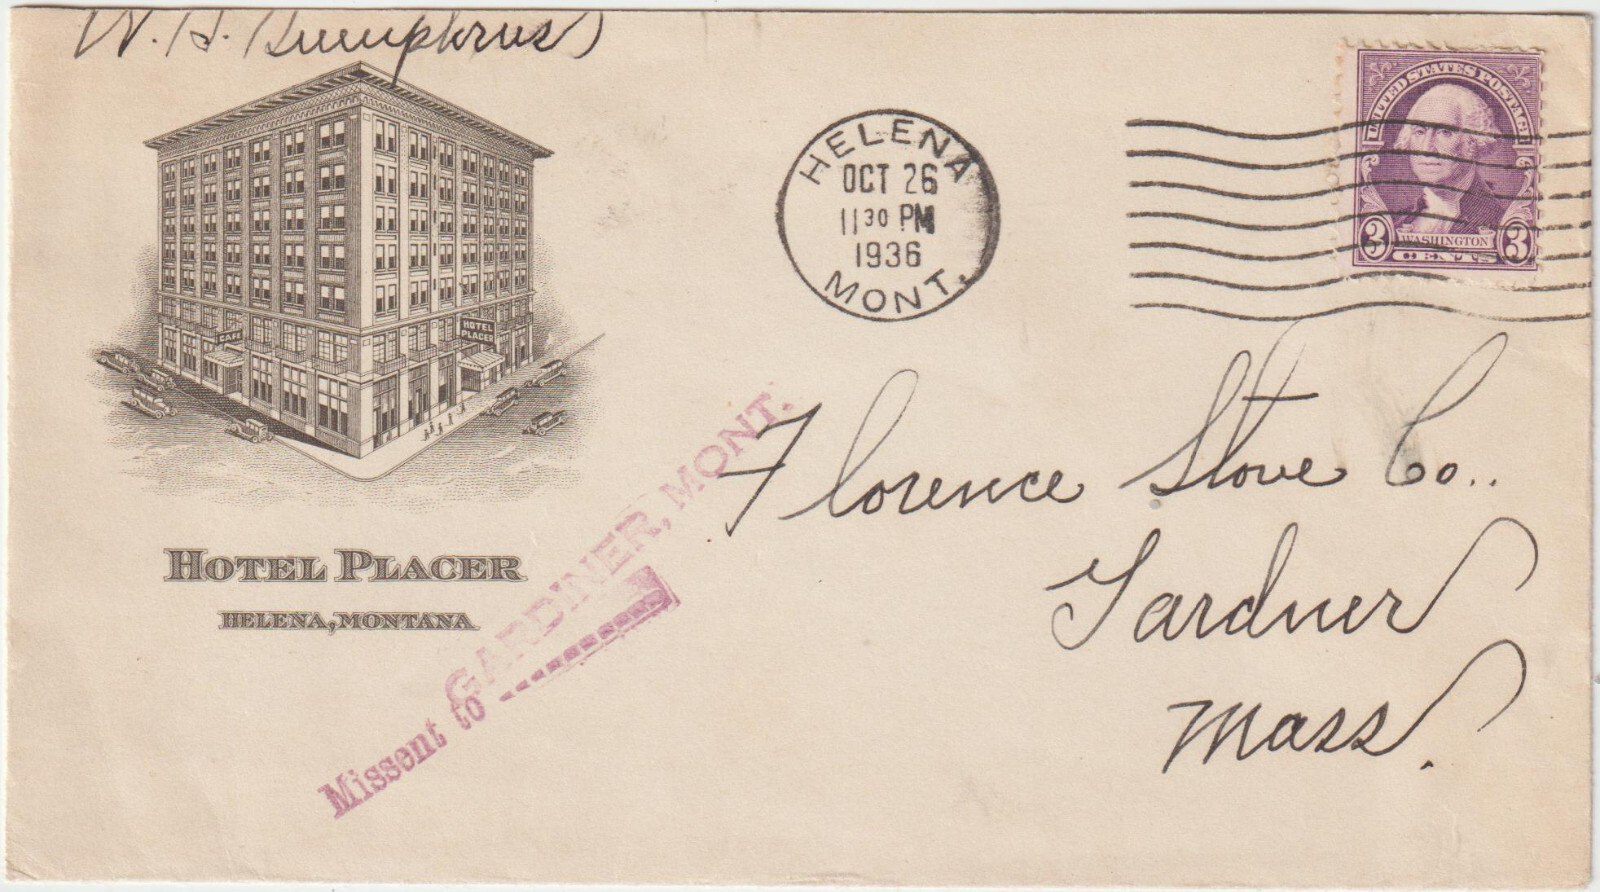 W. H. Humphries
CAFE
HOTEL
PLACER
HOTEL PLACER
HELENA, MONTANA
HELENA
OCT 26
11 30 PM
1936
MONT.
UNITED STATES POSTAGE
3 WASHINGTON 3
CENTS
Florence Stove Co..
Gardner
Mass.
GARDINER, MONT.
Missent to